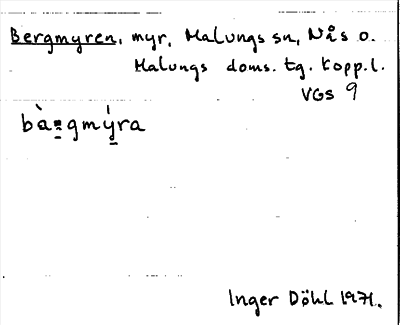 Bergmyren, myr, Malungs sn, Nås o.
Malungs doms. tg. Kopp. l.
VGS 9
Inger Döhl 1971.